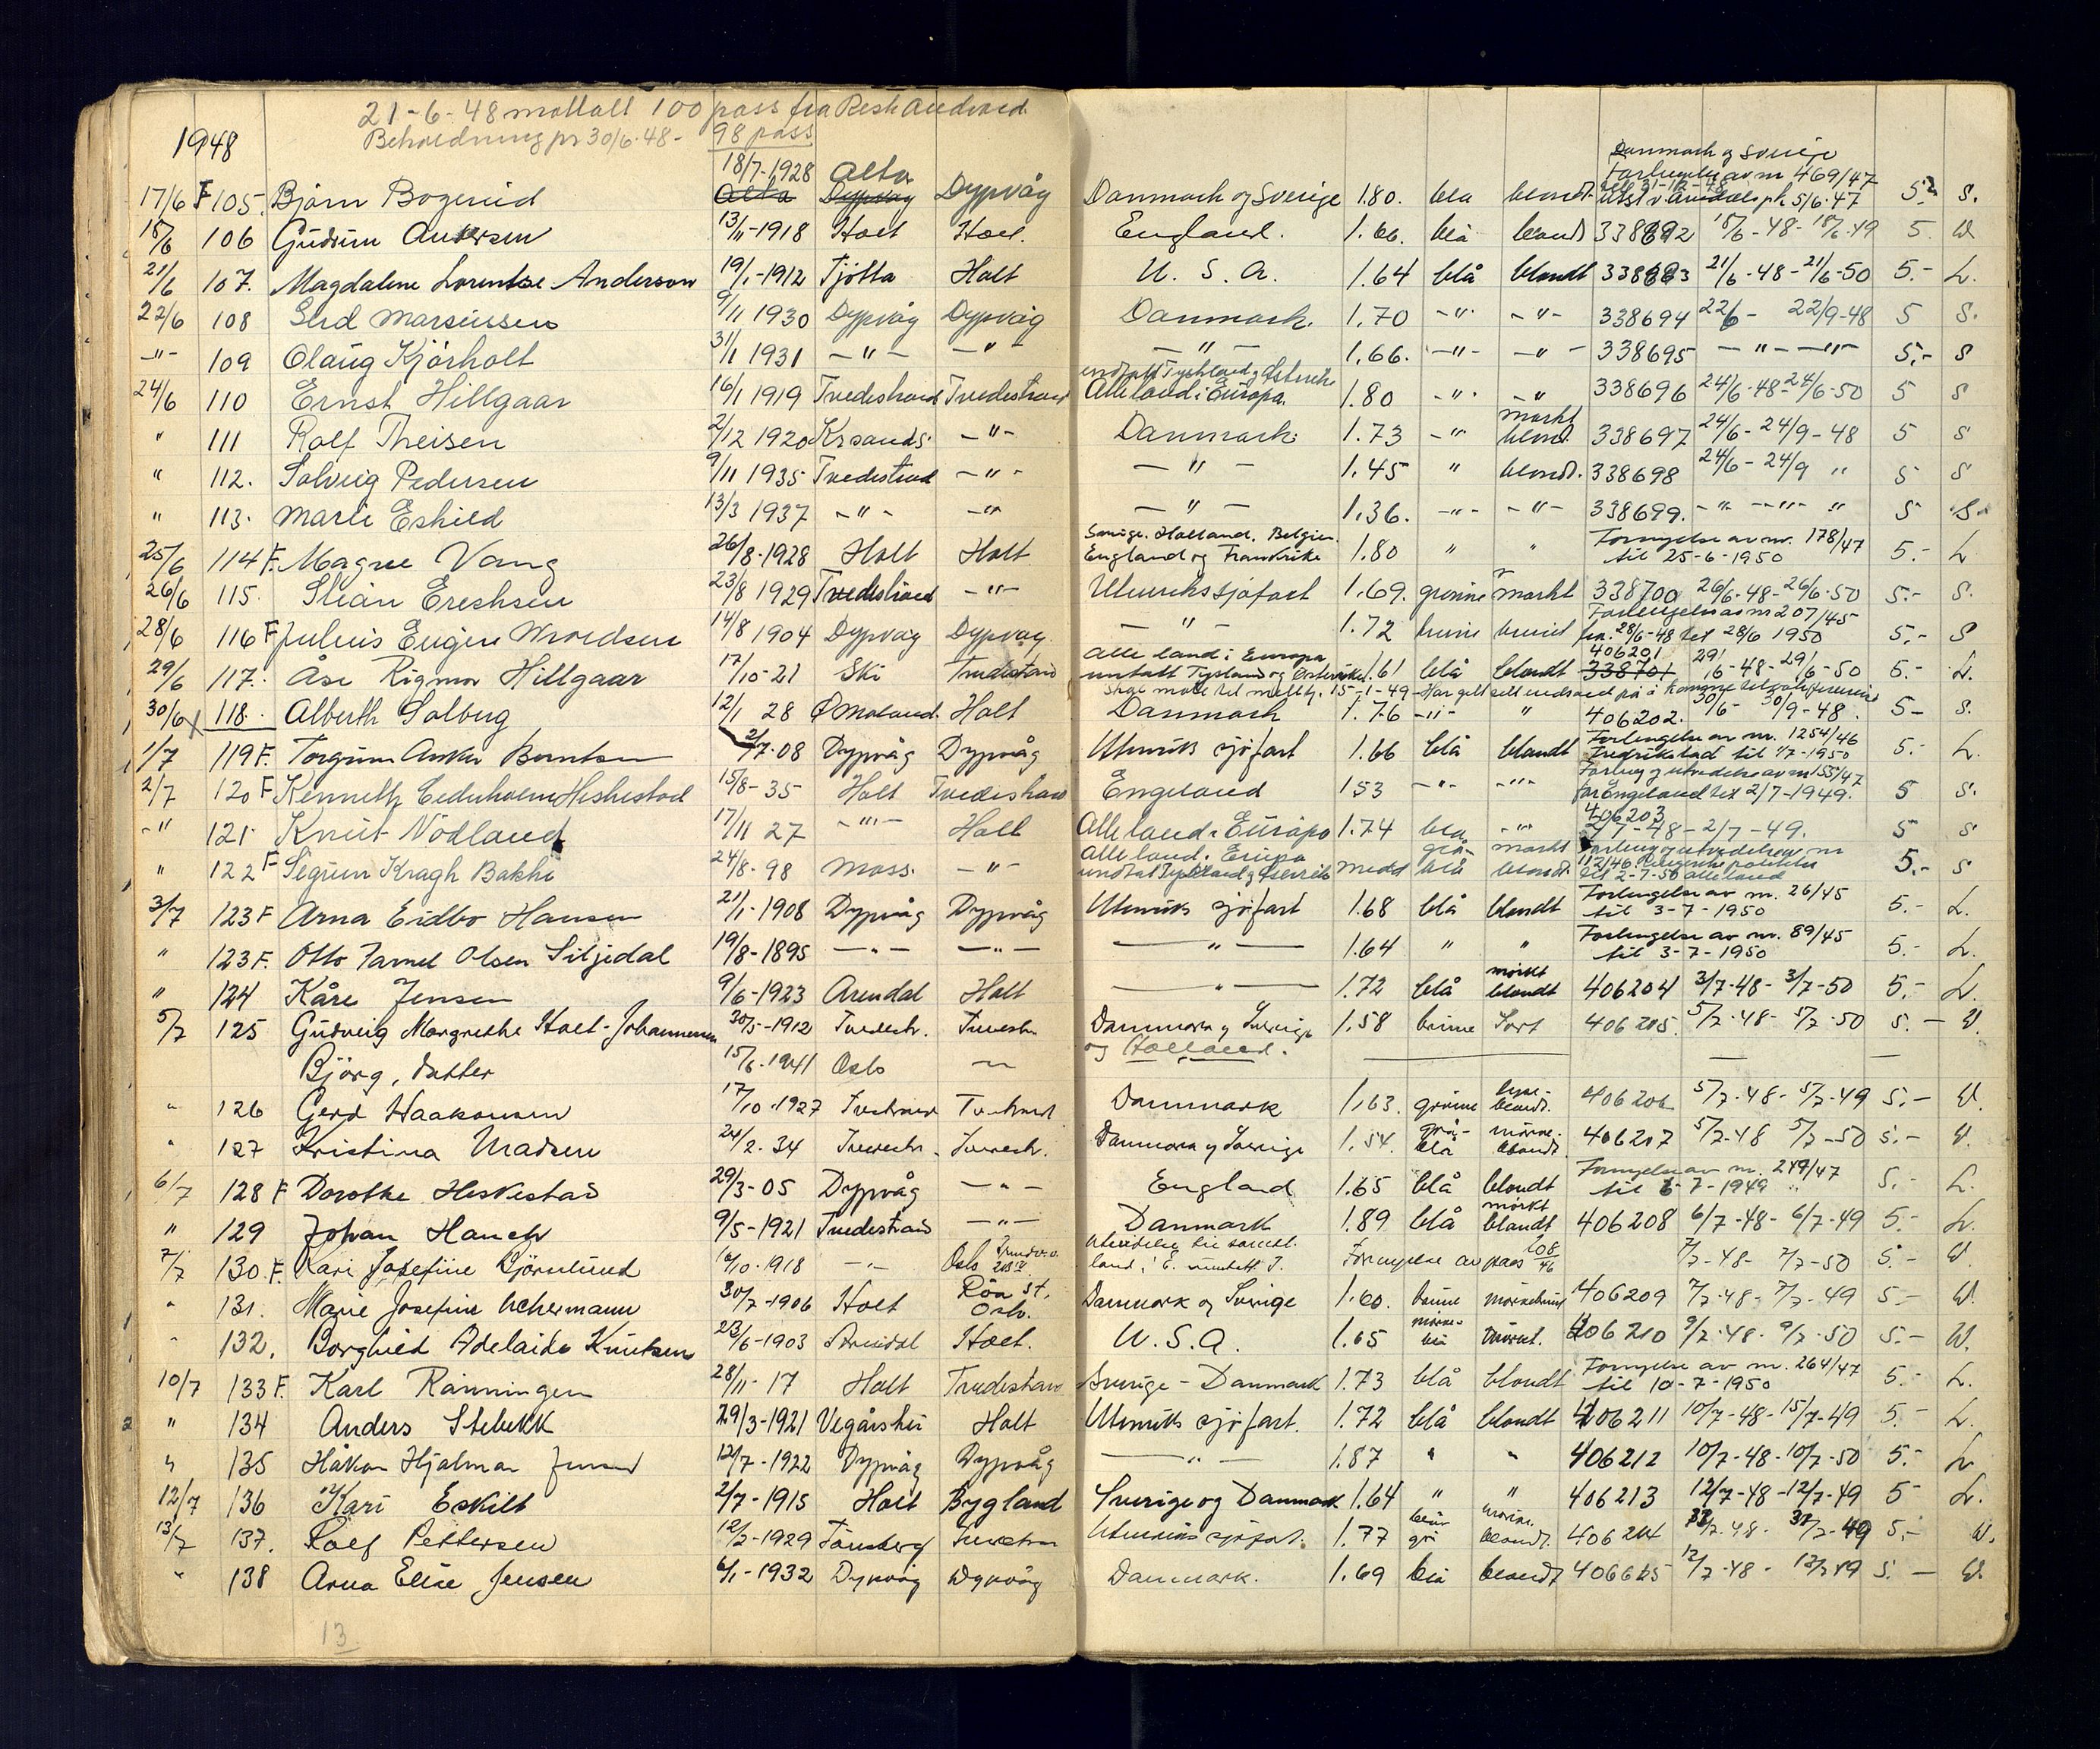 21-6-48 mottatt 100 pass fra
Beholdning pr 30/6-48- 98 pass
1948
17/6 F 105. Björn Bogerud 18/7-1928 Alta Dypvåg Danmark og Sverige 1.80. blå blondt. Danmark og Sverige Forlengelse av nr 469/47 5/6-47 5.- S.
18/6 106 Gudrun Andersen 13/11-1918 Holt Holt. England. 1.66. blå blondt 338692 18/6-48-18/6-49 5. W
21/6 107. Magdalene Lorentze Anderson 19/1-1912 Tjötta Holt U. S. A. 1.64 blå blondt 338693 21/6-48-21/6-50 5.- L.
22/6 108 Marsiussen 9/11 1930 Dypvåg Dypvåg Danmark. 1.70 -"- -"- 338694 22/6- 22/9-48 5 S.
-"- 109 Olaug Kjörholt 31/1 1931 -"- -"- -"- 1.66. -"- -"- 338695 -"- -"- 5.- S
24/6 110 Ernst Hillgaar 16/1 1919 Tvedestrand Tvedestrand Alle land i Europa undtatt Tyskland og Østerrike 1.80 -"- -"- 338696 24/6-48-24/6-50 5 S
" 111 Rolf Theisen 2/12 1920 Krsands. -"- Danmark 1.73 -"- mørkt blond. 338697 24/6-24/9-48 5 S
" 112. Solveig Pedersen 9/11 1935 Tvedestrand -"- -"- 1.45 " blondt. 338698 24/6-24/9 " 5 S
" 113. Marli Eskild 13/3 1937 -"- -"- -"- 1.36. -"- -"- 338699. -"- -"- " 5 S.
25/6 114 F. Magne Vang 26/8-1928 Holt Holt Sverige. Holland. Belgien England og Frankrike 1.80 " " Fornyelse av nr. 178/47 til 25-6-1950 5.- L
26/6 115. Stian Ereksen 23/8 1929 Tvedestrand -"- Utenriks sjøfart 1.69. grønne mørkt 338700 26/6-48-26/6-50 5.- S.
28/6 116 F Julius Eugen 14/8 1904 Dypvåg Dypvåg. -"- 1.72 brune brunt Forlengelse av nr 207/45 fra 28/6-48 til 28/6 1950 5.- S
29/6 117. Åse Rigmor Hillgaar 17/10-21 Ski Tvedestrand Alle land i Europa unntatt Tyskland og Østerrike 1.61 blå blondt 406201 338701 29/6-48-29/6-50 5.- L.
30/6 x 118. Alberth Solberg 12/1 28 Ø Moland. Holt Danmark 1.76 -"- " 406202. 30/6- 30/9-48. 5- S.
1/7 119 F. Torgrim Anker Berntsen 2/7-08 Dypvåg Dypvåg Utenriks sjöfart 1.66 blå blondt Forlengelse av nr. 1254/46 Fredrikstad til 1/7-1950 5.- L.
2/7 120 F Kenneth Cederholm Heskestad 15/8-35 Holt Tvedestrand England 153 -"- -"- Forleng og utvidelse av nr 155/47 for England til 2/7-1949. 5 S.
-"- 121. Knut Nödland 17/11 27 -"- Holt Alle land i Europa 1.74 blå -"- 406203 2/7-48-2/7-49. 5 S
" 122 F Sigrun Kragh Bakke 24/8-98 Moss. -"- Alle land i Europa undtat Tyskland og Østerrike medd grå-blå mørkt blondt. 112/46 til 2-7-50 alle land 5.- S
3/7 123 F Arna Eidbo Hansen 21/1-1908 Dypvåg Dypvåg Utenriks sjöfart 1.68 blå blondt Forlengelse av nr. 26/45 til 3-7-1950 5.- L.
" 123 F. Otto Olsen Siljedal 19/8-1895 -"- -"- -"- 1.64 " " Forlengelse av nr. 89/45 til 3-7-1950 5.- L.
" 124 Kåre Jensen 9/6-1923 Arendal Holt -"- 1.72 blå mörkt blondt 406204 3/7-48-3/7-50 5.- L.
5/7 125 Gudveig Margrethe Holt-Johannessen 30/5-1912 Tvedestr. Tvedestr. Danmark og Sverige og Holland. 1.58 brune Sort 406205. 5/7-48-5/7-50 5.- W.
Björg, datter 15/6-1941 Oslo
" 126 Gerd Haakonsen 17/10-1927 Tvedestrand Tvedestrand Danmark 1.63. grönne lyse-blondt. 406206 5/7-48-5/7-49 5.- W.
" 127 Kristina Madsen 24/2-34 Tvedestr. Tvedestr. Danmark og Sverige 1.54. grå-blå mörke-blondt. 406207 5/7-48 5/7-50 5.- W.
6/7 128 F Dorothe Heskestad 29/3-05 Dypvåg -"- England 1.65 blå blondt Fornyelse av nr. 249/47 til 6-7-1949 5.- L.
" 129 Johan Hanch 9/5-1921 Tvedestrand -"- Danmark 1.89 blå mörkt blondt 406208 6/7-48-6/7-49 5.- L.
7/7 130. F. Kari Josefine Björnlund 10-1918 -"- Oslo Utvidelse til samtl. land i E. unntatt T. Fornyelse av pass 108/46 7/7-48-7/7-50 5.- W.
" 131. Marie Josefine Achermann 30/7-1906 Holt Röa st. Oslo. Danmark og Sverige 1.60. brune mörkebrunt 406209 7/7-48-7/7-49 5.- W.
" 132. Borghild Adelaide Knutsen 23/6-1903 Arendal Holt. U.S.A. 1.65 mörke-blå mörkt. 406210 9/7-48-9/7-50 5.- W.
10/7 133 F. Karl Rönningen 28/11-17 Holt Tvedestrand Sverige-Danmark 1.73 blå blondt Fornyelse av nr. 264/47 til 10-7-1950 5.- L.
" 134 Anders Stebekk 29/3-1921 Vegårshei Holt Utenriks sjöfart. 1.72 blå blondt 406211 10/7-48-15/7-49 5.- L.
" 135 Håkon Hjalmar Jensen 12/7-1922 Dypvåg Dypvåg -"- 1.87 " " 406212 10/7-48-10/7-50 5.- L
12/7 136 Kari Eskilt 2/7-1915 Holt Bygland Sverige og Danmark 1.64 " " 406213 12/7-48-12/7-49 5- L.
13/7 137. Rolf Pettersen 12/2-1929 Tönsberg Tvedestr. Utenriks sjöfart. 1.77 grå mörke blondt. 406214 -48- -49 5.- W.
" 138 Arna Elise Jensen 6/1-1932 Dypvåg Dypvåg Danmark. 1.69 blå blondt 12/7-48- 12/7 49 5.- W.
13